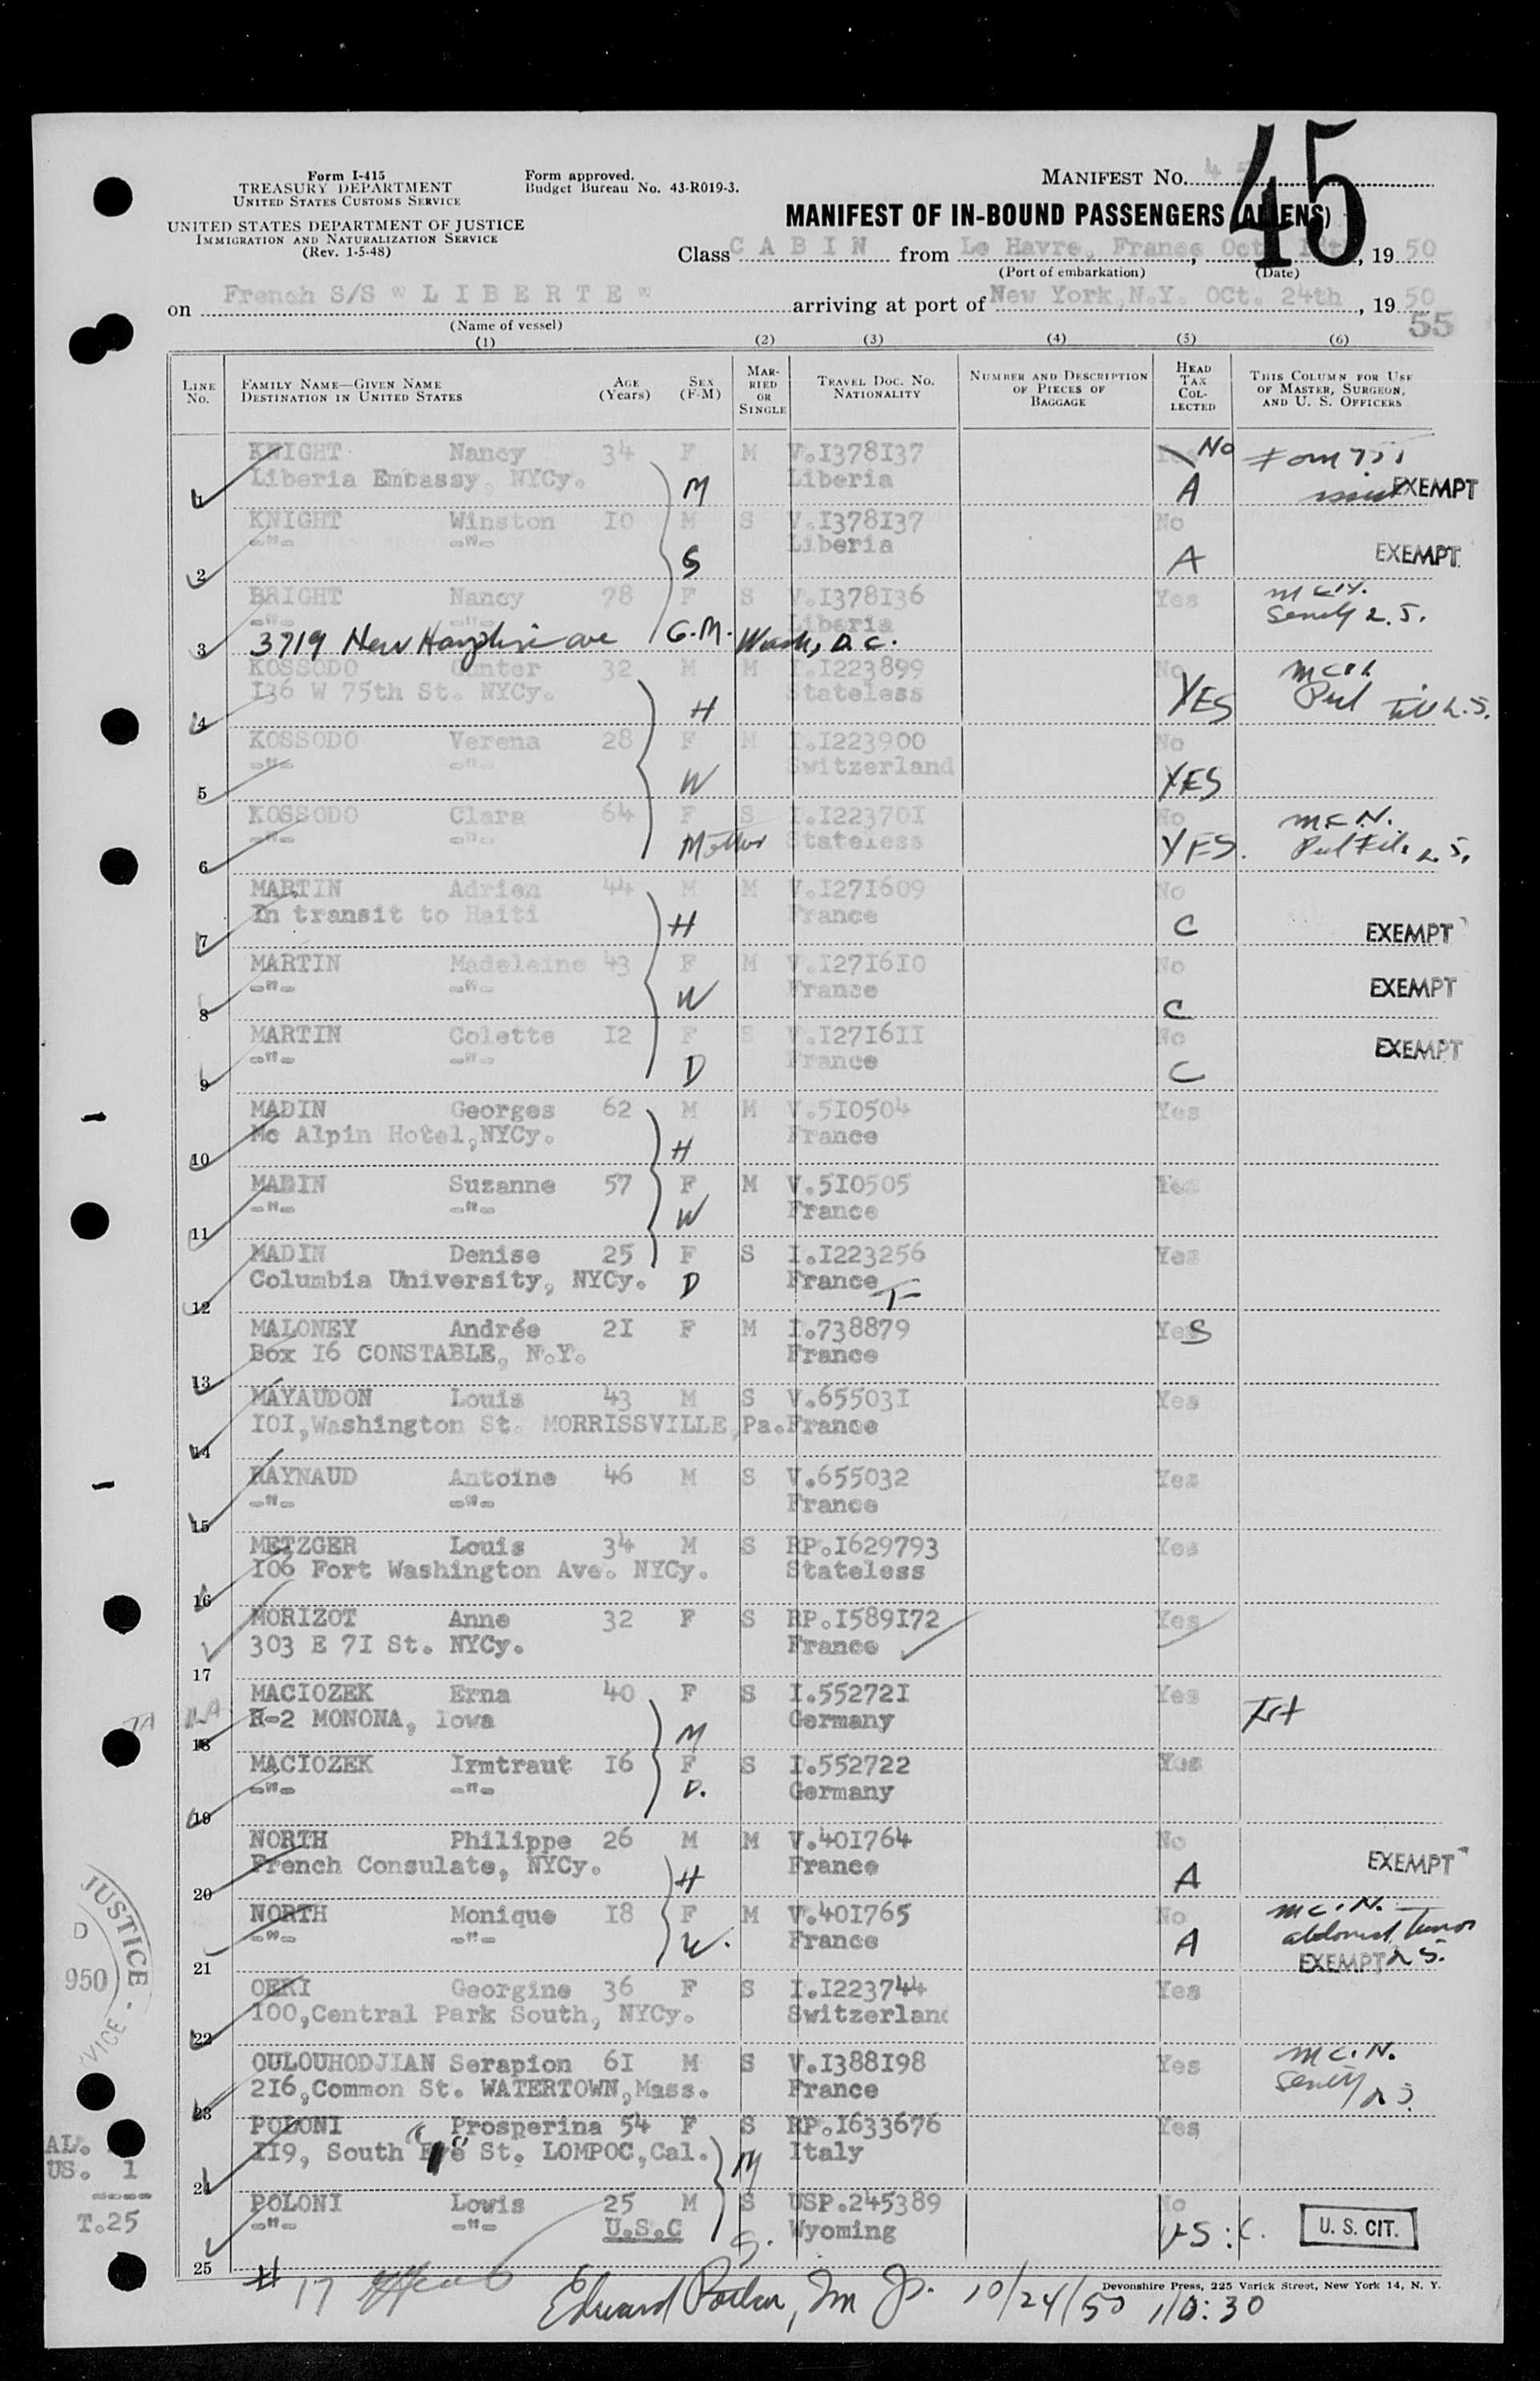 Form I-415
TREASURY DEPARTMENT
UNITED STATES CUSTOMS SERVICE
UNITED STATES DEPARTMENT OF JUSTICE
IMMIGRATION AND NATURALIZATION SERVICE
(Rev. 1-5-48)
Form approved.
Budget Bureau No. 43-R019-3.
MANIFEST No. 45
MANIFEST OF IN-BOUND PASSENGERS (ALIENS)
Class CABIN from Le Havre, France, Oct. , 1950
(Port of embarkation) (Date)
on French S/S "LIBERTE" arriving at port of New York, N.Y. OCt. 24th, 1950
(Name of vessel)
55
(1) (2) (3) (4) (5) (6)
LINE No. FAMILY NAME—GIVEN NAME DESTINATION IN UNITED STATES AGE (Years) SEX (F-M) MARRIED OR SINGLE TRAVEL DOC. No. NATIONALITY NUMBER AND DESCRIPTION OF PIECES OF BAGGAGE HEAD TAX COLLECTED THIS COLUMN FOR USE OF MASTER, SURGEON, AND U. S. OFFICERS
KNIGHT Nancy 34 F M V.I378I37 No
1 Liberia Embassy, NYCy. M Liberia A EXEMPT
KNIGHT Winston I0 M S V.I378I37 No
2 -"- -"- S Liberia A EXEMPT
BRIGHT Nancy 78 F S V.I378I36 Yes
-"- -"- Liberia
3 3719 New Hampshire ave G.M. Wash, D.C.
KOSSODO Gunter 32 M M I.I223899 No
4 I36 W 75th St. NYCy. H Stateless YES
KOSSODO Verena 28 F M I.I223900 No
5 -"- -"- W Switzerland YES
KOSSODO Clara 64 F S I.I22370I No
6 -"- -"- Mother Stateless YES.
MARTIN Adrien 44 M M V.I27I609 No
7 In transit to Haiti H France C EXEMPT
MARTIN Madeleine 43 F M V.I27I6I0 No
8 -"- -"- W France C EXEMPT
MARTIN Colette I2 F S V.I27I6II No
9 -"- -"- D France C EXEMPT
MADIN Georges 62 M M V.5I0504 Yes
10 Mc Alpin Hotel,NYCy. H France
MADIN Suzanne 57 F M V.5I0505 Yes
11 -"- -"- W France
MADIN Denise 25 F S I.I223256 Yes
12 Columbia University, NYCy. D France
MALONEY Andrée 2I F M I.738879 Yes
13 Box I6 CONSTABLE, N.Y. France
MAYAUDON Louis 43 M S V.65503I Yes
14 I0I,Washington St. MORRISSVILLE,Pa. France
RAYNAUD Antoine 46 M S V.655032 Yes
15 -"- -"- France
METZGER Louis 34 M S RP.I629793 Yes
16 I06 Fort Washington Ave. NYCy. Stateless
MORIZOT Anne 32 F S RP.I589I72 Yes
17 303 E 7I St. NYCy. France
MACIOZEK Erna 40 F S I.55272I Yes
18 R-2 MONONA, Iowa M Germany
MACIOZEK Irmtraut I6 F S I.552722 Yes
19 -"- -"- D. Germany
NORTH Philippe 26 M M V.40I764 No
20 French Consulate, NYCy. H France A EXEMPT
NORTH Monique I8 F M V.40I765 No
21 -"- -"- W. France A EXEMPT
OERI Georgine 36 F S I.I223744 Yes
22 I00,Central Park South, NYCy. Switzerland
OULOUHODJIAN Serapion 6I M S V.I388I98 Yes
23 2I6,Common St. WATERTOWN,Mass. France
POLONI Prosperina 54 F S RP.I633676 Yes
24 II9, South St. LOMPOC,Cal. M Italy
POLONI Lowis 25 M S USP.245389 No
25 -"- -"- U.S.C S. Wyoming U.S.C. U. S. CIT.
JUSTICE
950
AL.
US. 1
T.25
Devonshire Press, 225 Varick Street, New York 14, N. Y.
# 17 Edward 10/24/50